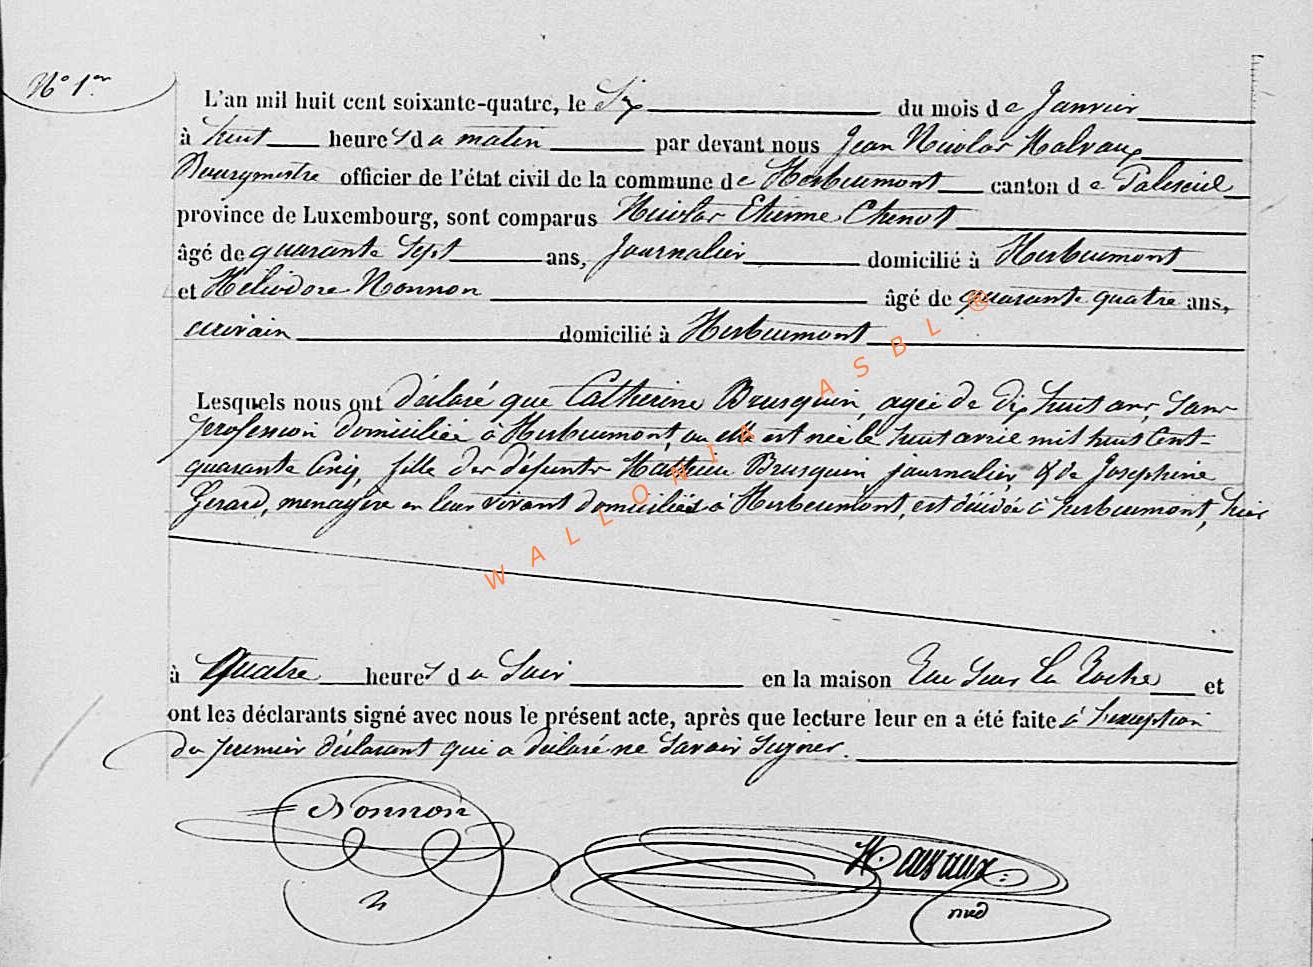 N° 1er
L'an mil huit cent soixante-quatre, le Six du mois de Janvier
à huit heures du matin par devant nous Jean Nicolas Malvaux
Bourgmestre officier de l'état civil de la commune de Herbeumont canton de Paliseul
province de Luxembourg, sont comparus Nicolas Etienne Chenot
âgé de quarante Sept ans, Journalier domicilié à Herbeumont
et Héliodore Nonnon âgé de quarante quatre ans,
écrivain domicilié à Herbeumont
Lesquels nous ont déclaré que Catherine Brusquin, agée de dix huit ans, sans
profession domiciliée à Herbeumont, ou elle est née le huit avril mil huit Cent
quarante Cinq, fille des défunts Mathieu Brusquin journalier, & de Joséphine
Gerard, menagère en leur vivant domiciliés à Herbeumont, est décédée à herbeumont, hier
à Quatre heures du Soir en la maison Rue Sur la Roche et
ont les déclarants signé avec nous le présent acte, après que lecture leur en a été faite à l'exception
du premier déclarant qui a déclaré ne Savoir Signer.
Nonnon
Malvaux
WALLONIA ASBL ®